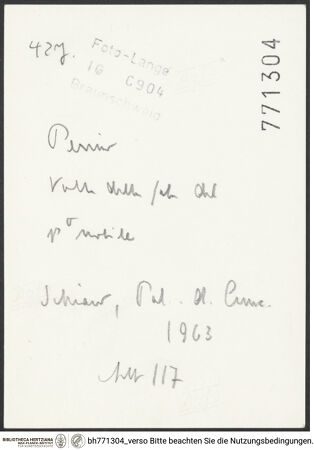 427.
Foto-Lange
16 C904
Braunschweig
771304
Perino
Volta della sala del
p° nobile
Schiavo, Pal. d. Canc.
1963
117
BIBLIOTHECA HERTZIANA
MAX-PLANCK-INSTITUT
FÜR KUNSTGESCHICHTE
bh771304_verso Bitte beachten Sie die Nutzungsbedingungen.